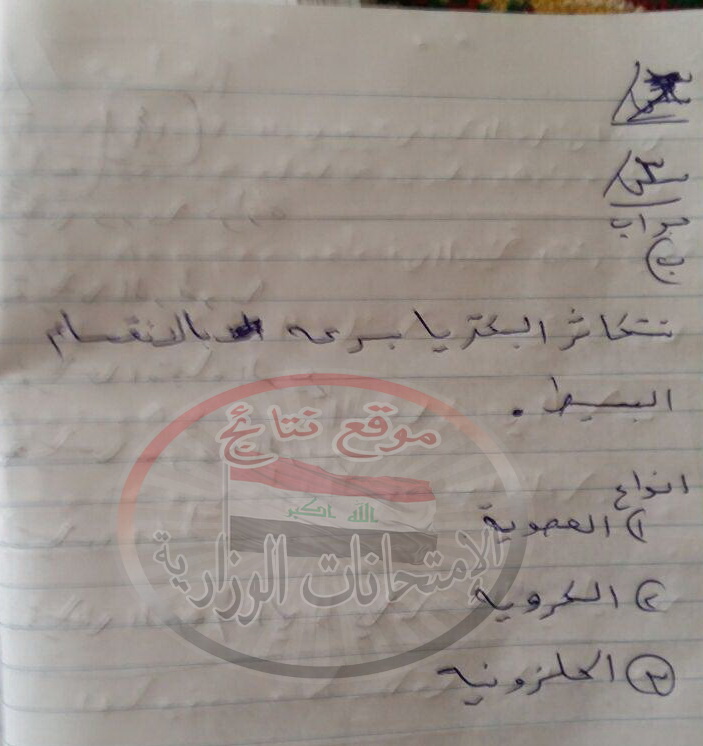 جواب
تتكاثر البكتريا بسرعه بالانقسام
البسيط .
انواع
١) العصوية
٢) الكرويه
٣) الحلزونيه
موقع نتائج
الله اكبر
الامتحانات الوزارية